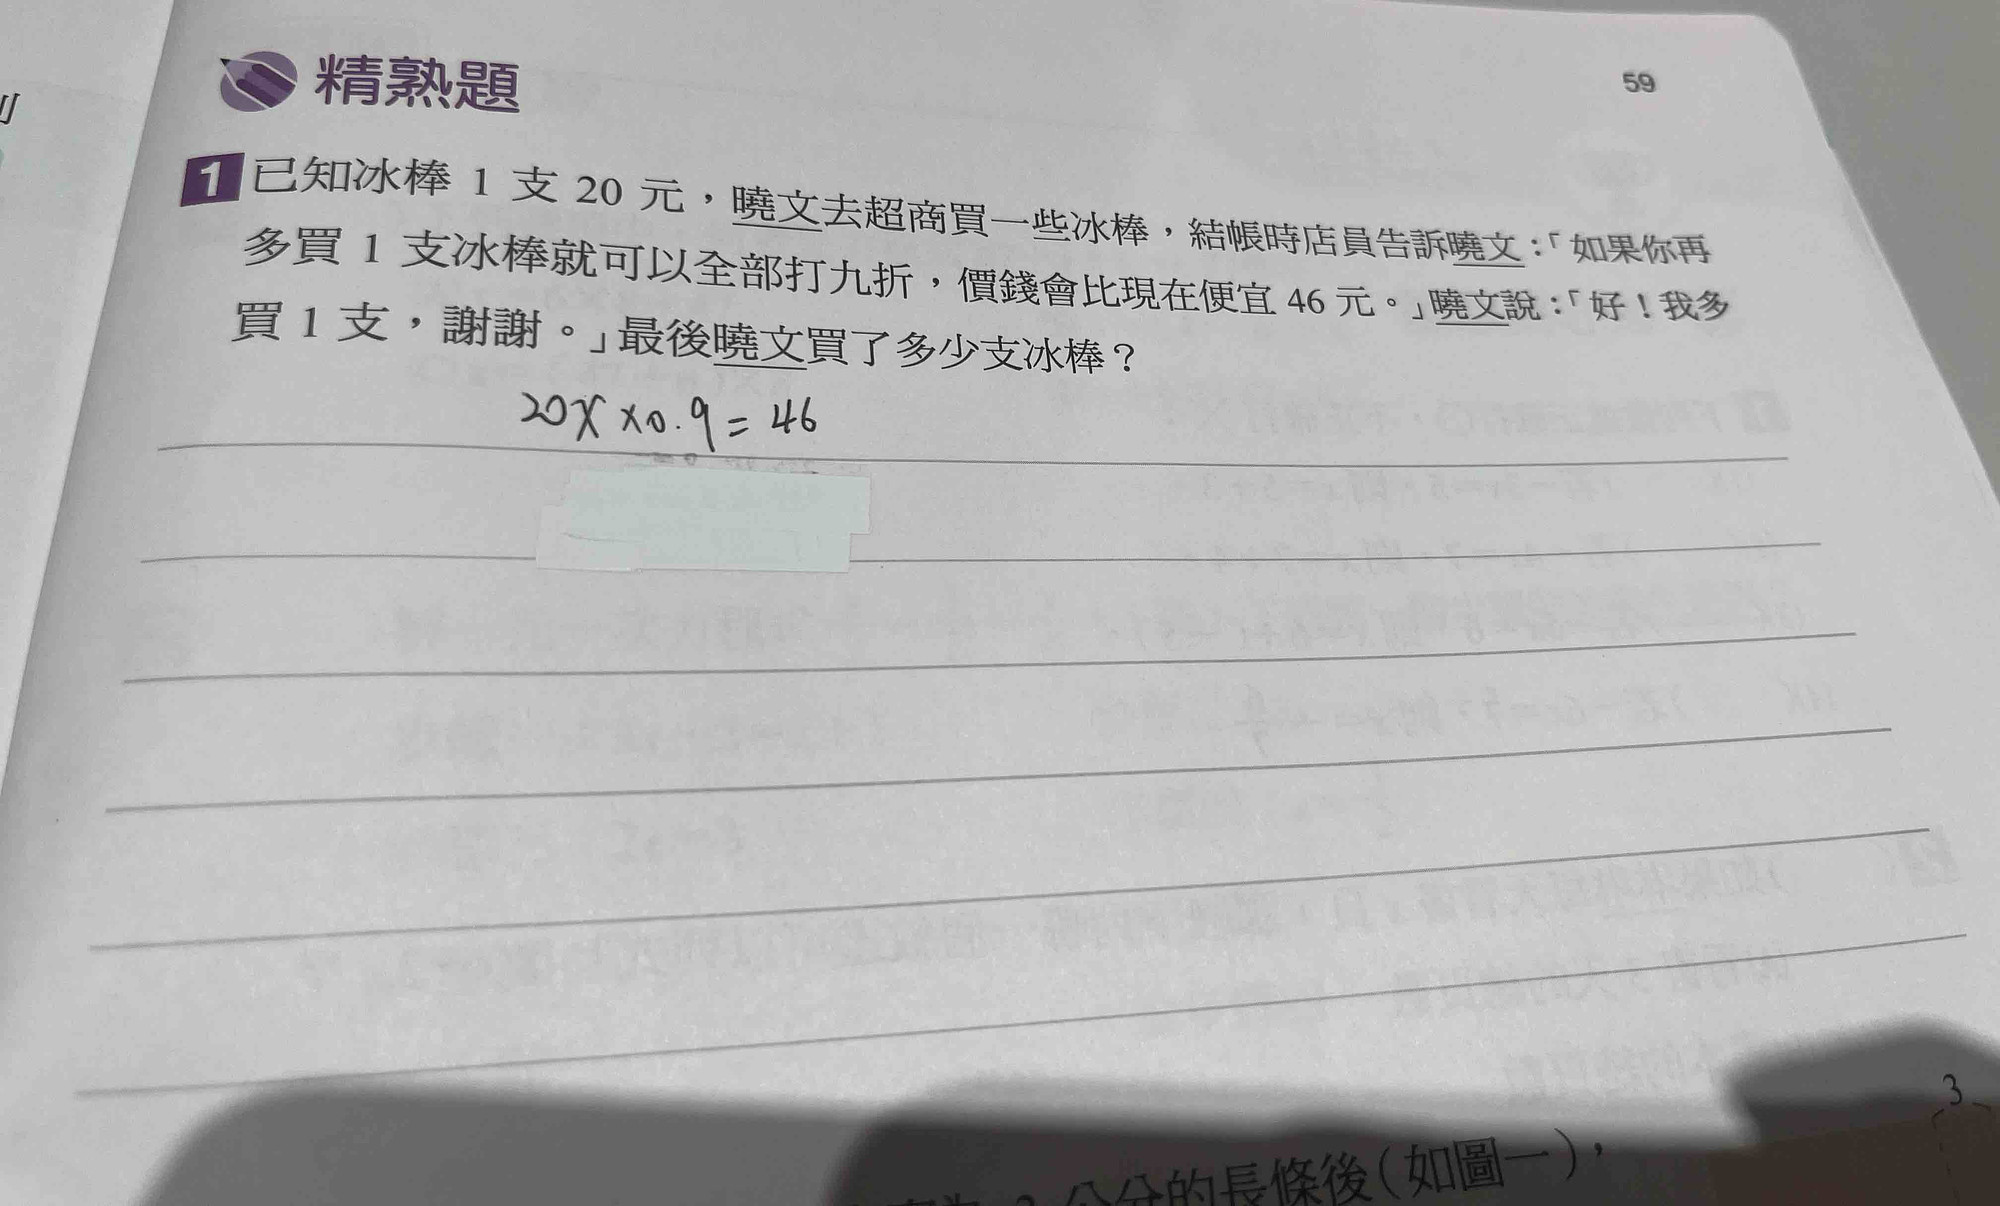 精熟題
59
1 已知冰棒 1 支 20 元，曉文去超商買一些冰棒，結帳時店員告訴曉文：「如果你再
多買 1 支冰棒就可以全部打九折，價錢會比現在便宜 46 元。」曉文說：「好！我多
買 1 支，謝謝。」最後曉文買了多少支冰棒？
20x×0.9=46
3
公分的長條後（如圖一），